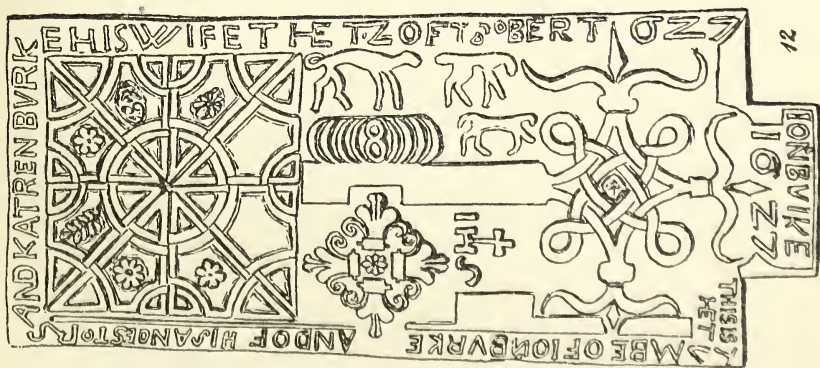 THISIS
HET
MBE OF IONBVRKE
AND OF HIS ANCESTORS
AND KATREN BVRK
E HIS WIFE THE TZ OF T8OBERT 16Z7
IHS
IONBVIKE
16Z7
12